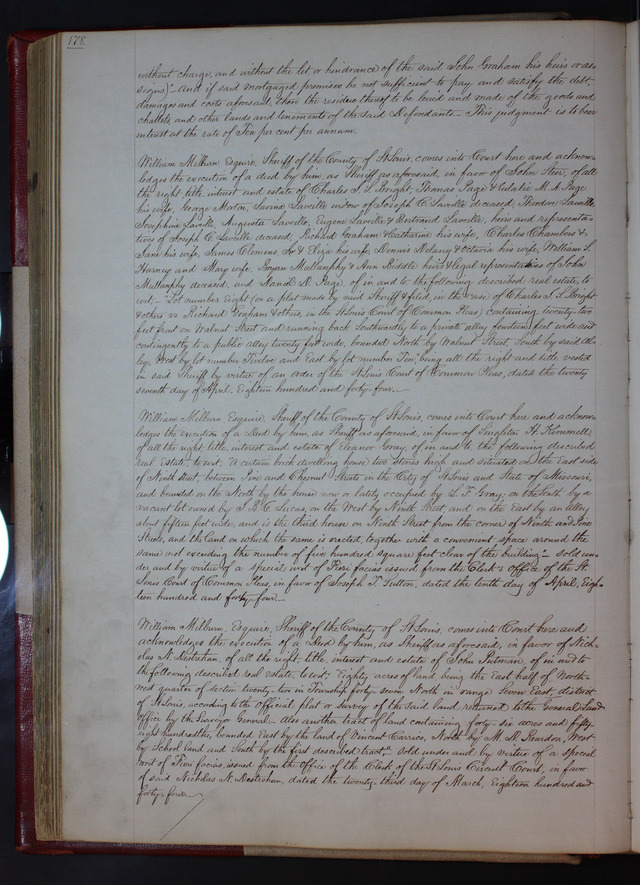 178
without charge, and without the let or hindrance of the said John Graham his heirs or as-
signs)" and if said mortgaged premises be not sufficient to pay and satisfy the debt,
damages and costs aforesaid, then the residue thereof to be levied and made of the goods and
chattels, and other lands and tenements of the said Defendants. This judgment is to bear
interest at the rate of Ten per cent per annum.
William Milburn, Esquire, Sheriff of the County of St. Louis, comes into Court here and acknow-
ledges the execution of a deed by him, as Sheriff as aforesaid, in favor of John Steer, of all
the right title, interest and estate of Charles I. S. Bright, Thomas Page & Eulalie M. A. Page
his wife, George Morton, Lavinia Laveille widow of Joseph C. Laveille deceased, Theodore Laveille,
Josephine Laveille, Augusta Laveille, Eugene Laveille & Bertrand Laveille, heirs and representa-
tives of Joseph C. Laveille deceased, Richard Graham & Catharine his wife, Charles Chambers &
Jane his wife, James Clemens Jr & Eliza his wife, Dennis Delany & Octavia his wife, William S.
Harney and Mary wife, Bryan Mullanphy & Ann Biddle heirs & legal representatives of John
Mullanphy deceased, and Daniel D. Page, of in and to the following described real estate, to
wit;- "Lot number Eight (on a plat made by said Sheriff & filed, in the case of Charles I. S. Bright
& others vs Richard Graham & others, in the St. Louis Court of Common Pleas) containing twenty two
feet front on Walnut Street and running back Southwardly to a private alley fourteen feet wide and
contingently to a public alley twenty feet wide, bounded North by Walnut Street, South by said Al-
ley, West by lot number Twelve and East by lot number Ten," being all the right and title vested
in said Sheriff by virtue of an order of the St. Louis Court of Common Pleas, dated the twenty
seventh day of April, Eighteen hundred and forty-four.
William Milburn, Esquire, Sheriff of the County of St. Louis, comes into Court here and acknow-
ledges the execution of a Deed by him, as Sheriff as aforesaid, in favor of Singleton H. Kimmell,
of all the right, title, interest and estate of Eleanor Gray, of, in and to the following described
real Estate, to wit; A certain brick dwelling house two stories high and situated on the East side
of Ninth street, between Pine and Chesnut Streets in the City of St Louis and State of Missouri,
and bounded on the North by the house now or lately occupied by L. T. Gray, on the South by a
vacant lot owned by J. B. C. Lucas, on the West by Ninth Street and on the East by an alley
about fifteen feet wide, and is the third house on Ninth Street from the corner of Ninth and Pine
Streets, and the land on which the same is erected, together with a convenient space around the
same not exceeding the number of five hundred square feet clear of the building"- sold un-
der and by virtue of a special writ of Fieri facias issued from the Clerk's Office of the St.
Louis Court of Common Pleas, in favor of Joseph T. Sutton, dated the tenth day of April, Eigh-
teen hundred and forty-four.
William Milburn, Esquire, Sheriff of the County of St. Louis, comes into Court here and
acknowledges the execution of a Deed by him, as Sheriff as aforesaid, in favor of Nich-
olas N. Destrehan, of all the right, title, interest and estate of John Putman, of in and to
the following described real estate, to wit; Eighty acres of land being the East half of North-
west quarter of section twenty-two in Township forty seven North in range seven East, district
of St. Louis, according to the Official plat or survey of the said land returned to the General Land
Office by the Surveyor General. Also another tract of land containing forty-six acres and fifty-
eight hundredths, bounded East by the land of Vincent Carrico, North by M. D. Reardon, West
by School land and South by the first described tract"- Sold under and by virtue of a special
writ of Fieri facias, issued from the office of the Clerk of the St. Louis Circuit Court, in favor
of said Nicholas N. Destrehan, dated the twenty-third day of March, Eighteen hundred and
forty-four.